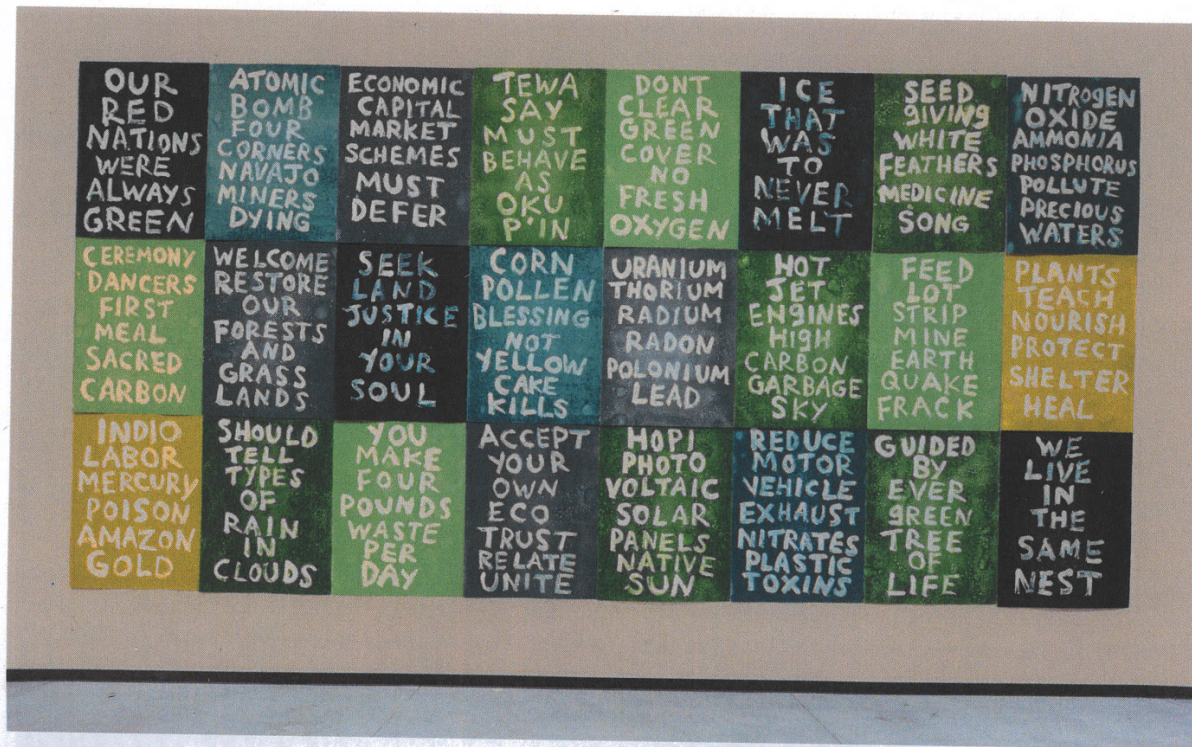 OUR
RED
NATIONS
WERE
ALWAYS
GREEN
ATOMIC
BOMB
FOUR
CORNERS
NAVAJO
MINERS
DYING
ECONOMIC
CAPITAL
MARKET
SCHEMES
MUST
DEFER
TEWA
SAY
MUST
BEHAVE
AS
OKU
P'IN
DONT
CLEAR
GREEN
COVER
NO
FRESH
OXYGEN
ICE
THAT
WAS
TO
NEVER
MELT
SEED
gIVINg
WHITE
FEATHERS
MEDICINE
SONG
NITROgEN
OXIDE
AMMONIA
PHOSPHORUS
POLLUTE
PRECIOUS
WATERS
CEREMONY
DANCERS
FIRST
MEAL
SACRED
CARBON
WELCOME
RESTORE
OUR
FORESTS
AND
GRASS
LANDS
SEEK
LAND
JUSTICE
IN
YOUR
SOUL
CORN
POLLEN
BLESSING
NOT
YELLOW
CAKE
KILLS
URANIUM
THORIUM
RADIUM
RADON
POLONIUM
LEAD
HOT
JET
ENgINES
HIgH
CARBON
GARBAGE
SKY
FEED
LOT
STRIP
MINE
EARTH
QUAKE
FRACK
PLANTS
TEACH
NOURISH
PROTECT
SHELTER
HEAL
INDIO
LABOR
MERCURY
POISON
AMAZON
GOLD
SHOULD
TELL
TYPES
OF
RAIN
IN
CLOUDS
YOU
MAKE
FOUR
POUNDS
WASTE
PER
DAY
ACCEPT
YOUR
OWN
ECO
TRUST
RELATE
UNITE
HOPI
PHOTO
VOLTAIC
SOLAR
PANELS
NATIVE
SUN
REDUCE
MOTOR
VEHICLE
EXHAUST
NITRATES
PLASTIC
TOXINS
GUIDED
BY
EVER
gREEN
TREE
OF
LIFE
WE
LIVE
IN
THE
SAME
NEST